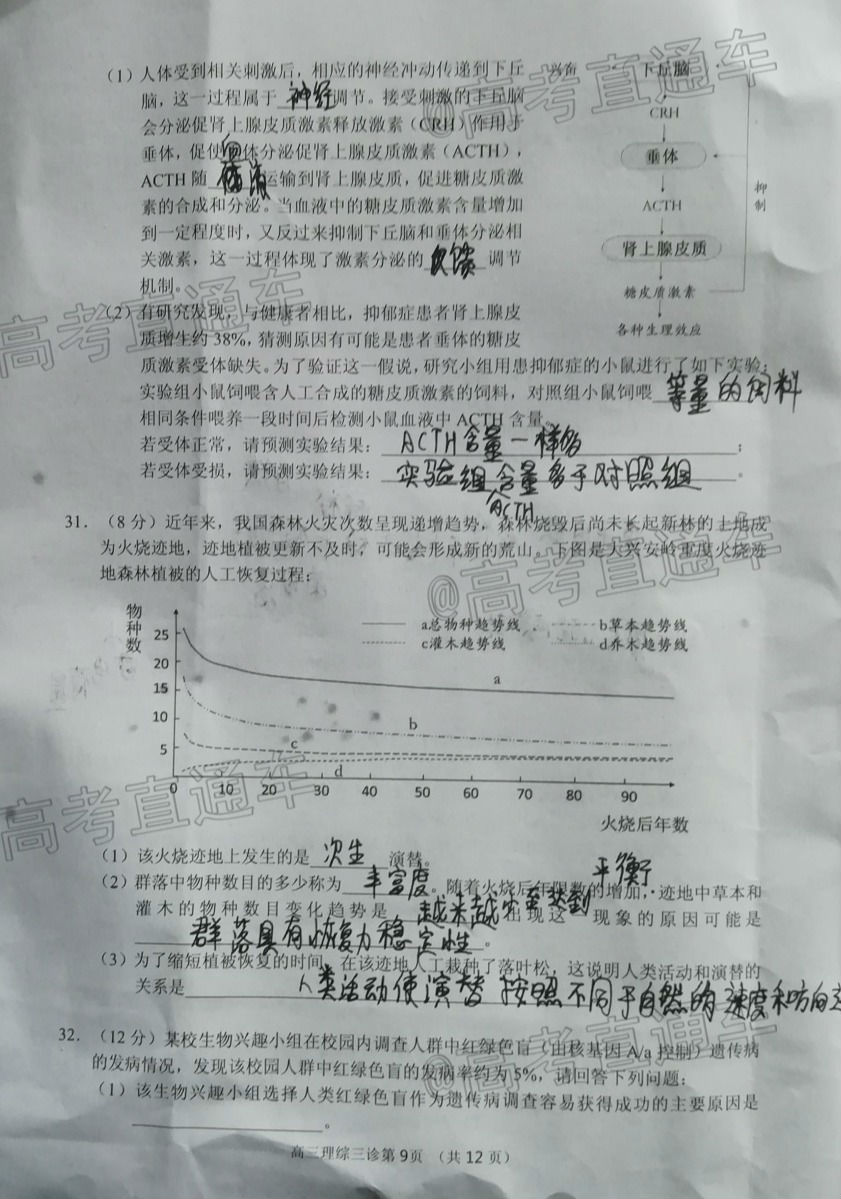 (1)人体受到相关刺激后,相应的神经冲动传递到下丘
脑,这一过程属于 神经 调节。接受刺激的下丘脑
会分泌促肾上腺皮质激素释放激素(CRH)作用于
垂体,促使垂体分泌促肾上腺皮质激素(ACTH),
ACTH 随 血液 运输到肾上腺皮质,促进糖皮质激
素的合成和分泌。当血液中的糖皮质激素含量增加
到一定程度时,又反过来抑制下丘脑和垂体分泌相
关激素,这一过程体现了激素分泌的 反馈 调节
机制。
兴奋
下丘脑
CRH
垂体
ACTH
抑制
肾上腺皮质
糖皮质激素
各种生理效应
(2)有研究发现,与健康者相比,抑郁症患者肾上腺皮
质增生约38%,猜测原因有可能是患者垂体的糖皮
质激素受体缺失。为了验证这一假说,研究小组用患抑郁症的小鼠进行了如下实验:
实验组小鼠饲喂含人工合成的糖皮质激素的饲料,对照组小鼠饲喂 等量的饲料
相同条件喂养一段时间后检测小鼠血液中 ACTH 含量。
若受体正常,请预测实验结果: ACTH含量一样多 ;
若受体受损,请预测实验结果: 实验组含量多于对照组 。
ACTH
31.(8分)近年来,我国森林火灾次数呈现递增趋势,森林烧毁后尚未长起新林的土地成
为火烧迹地,迹地植被更新不及时,可能会形成新的荒山。下图是大兴安岭重度火烧迹
地森林植被的人工恢复过程:
物种数
a总物种趋势线 b草本趋势线
c灌木趋势线 d乔木趋势线
25
20
15
10
5
a
b
c
d
0 10 20 30 40 50 60 70 80 90
火烧后年数
(1)该火烧迹地上发生的是 次生 演替。
(2)群落中物种数目的多少称为 丰富度。随着火烧后年限数的增加,迹地中草本和
平衡
灌木的物种数目变化趋势是 越来越少至达到 出现这一现象的原因可能是
群落具有恢复力稳定性 。
(3)为了缩短植被恢复的时间,在该迹地人工栽种了落叶松,这说明人类活动和演替的
关系是 人类活动使演替按照不同于自然的速度和方向
32.(12分)某校生物兴趣小组在校园内调查人群中红绿色盲(由核基因 A/a 控制)遗传病
的发病情况,发现该校园人群中红绿色盲的发病率约为5%,请回答下列问题:
(1)该生物兴趣小组选择人类红绿色盲作为遗传病调查容易获得成功的主要原因是
。
高三理综三诊第9页 (共12页)
@高考直通车
高考直通车
@高考直通车
高考直通车
@高考直通车